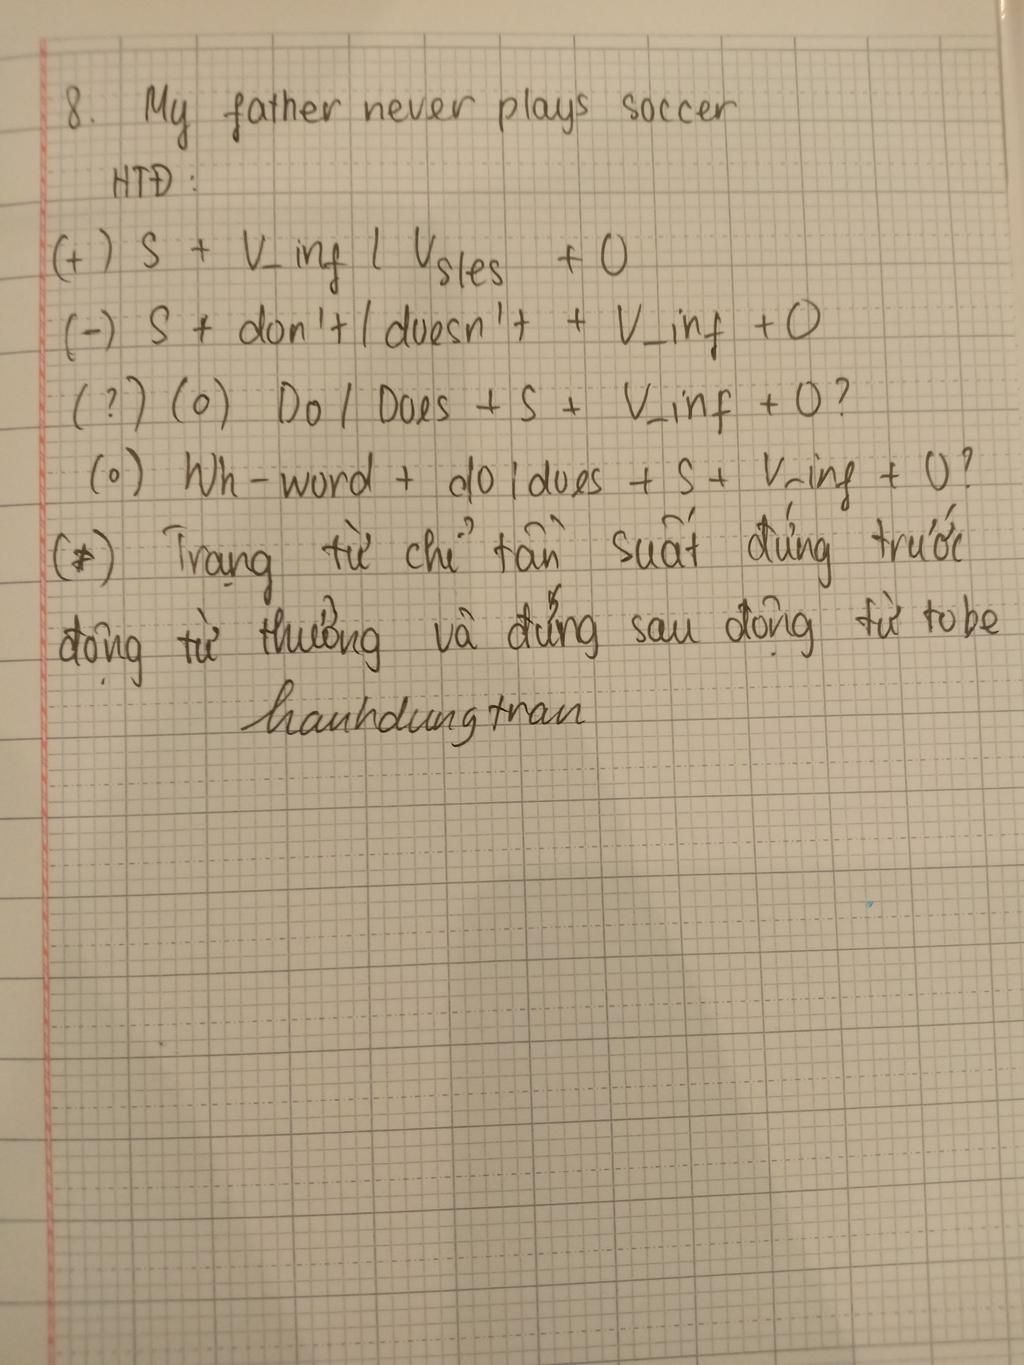 8. My father never plays soccer
HTĐ:
(+) S + V_inf / Vs/es + O
(-) S + don't / doesn't + V_inf + O
(?) (o) Do / Does + S + V_inf + O?
(o) Wh-word + do / does + S + V_inf + O?
(*) Trạng từ chỉ tần suất đứng trước
động từ thường và đứng sau động từ tobe
hanhdungtran